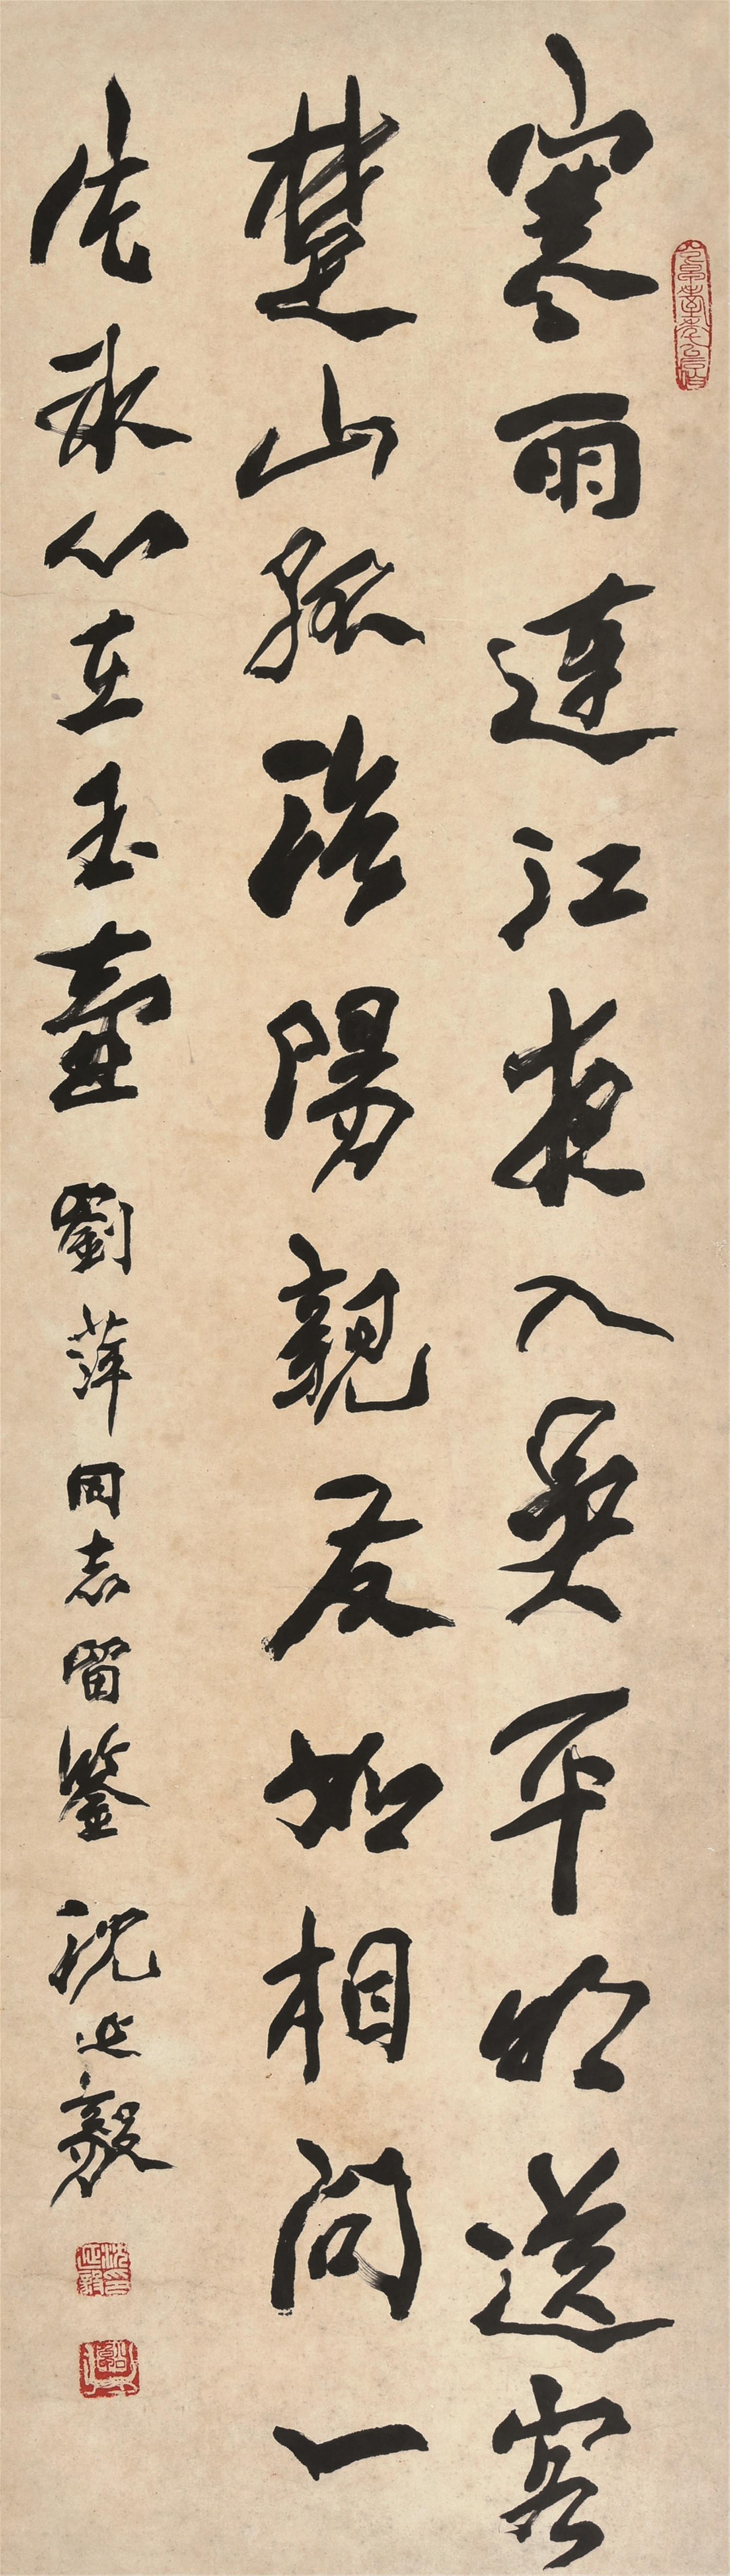 寒雨連江夜入吳平明送客
楚山孤洛陽親友如相問一
片冰心在玉壺 劉萍同志留鑒 沈延毅
沈延毅印